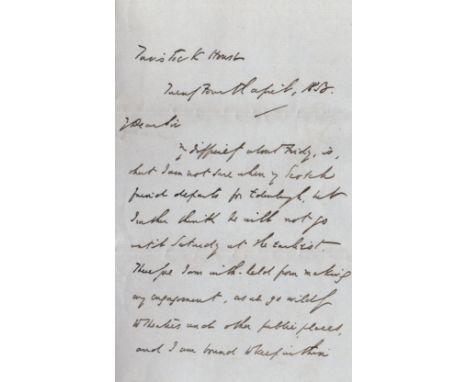 Tavistock House
Twenty Fourth April, 185
My Dear Sir
My difficulty about Friday, is,
that I am not sure when my Scotch
friend departs for Edinburgh, but
I rather think he will not go
until Saturday at the Earliest.
Therefore I am with-held from making
any engagement, as we go
Theatres and other public places,
and I am bound to keep within